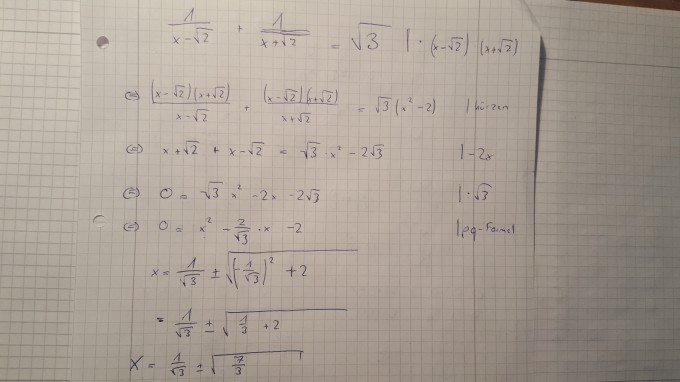 1/(x-√2) + 1/(x+√2) = √3 | · (x-√2) (x+√2)
⇔ (x-√2)(x+√2)/(x-√2) + (x-√2)(x+√2)/(x+√2) = √3 (x²-2) | kürzen
⇔ x+√2 + x-√2 = √3 · x² - 2√3 | -2x
⇔ 0 = √3 x² - 2x - 2√3 | · √3
⇔ 0 = x² - 2/√3 · x - 2 | pq-Formel
x = 1/√3 ± √((-1/√3)² + 2)
= 1/√3 ± √(1/3 + 2)
x = 1/√3 ± √(7/3)